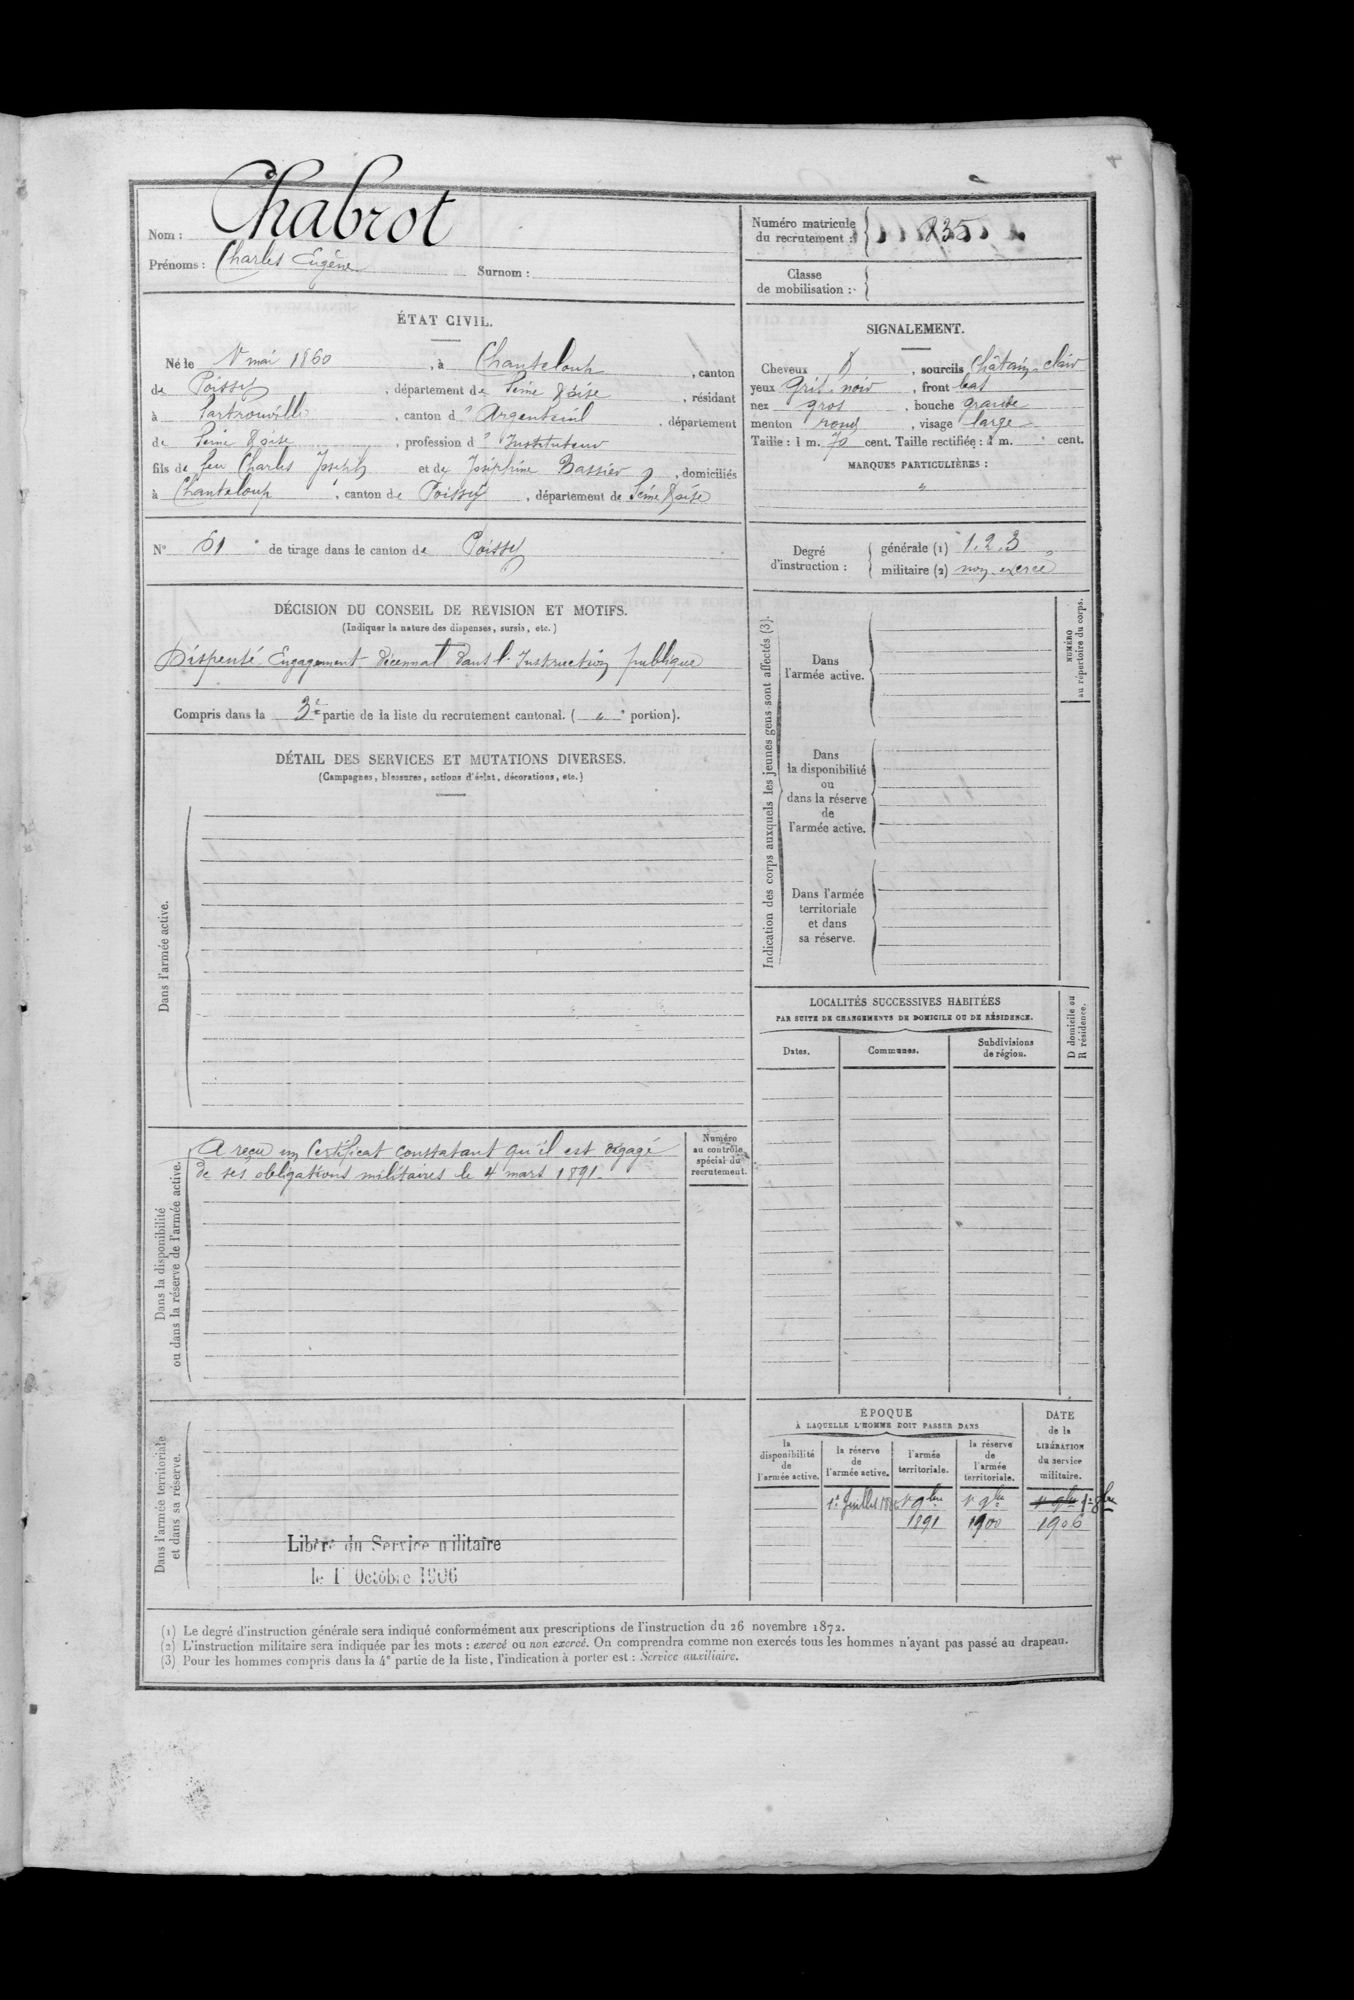 Nom : Chabrot
Prénoms : Charles Eugène Surnom :
Numéro matricule du recrutement : 235
Classe de mobilisation :
ÉTAT CIVIL.
Né le 1r mai 1860, à Chanteloup, canton
de Poissy, département de Seine & Oise, résidant
à Sartrouville, canton d'Argenteuil, département
de Seine & Oise, profession d'Instituteur
fils de feu Charles Joseph et de Joséphine Bassier, domiciliés
à Chanteloup, canton de Poissy, département de Seine & Oise
N° 61 de tirage dans le canton de Poissy
SIGNALEMENT.
Cheveux d, sourcils Châtain-clair
yeux gris-noir, front bas
nez gros, bouche grande
menton rond, visage large
Taille : 1 m. 70 cent. Taille rectifiée : 1 m. cent.
MARQUES PARTICULIÈRES :
"
Degré d'instruction :
générale (1) 1.2.3
militaire (2) non exercé
DÉCISION DU CONSEIL DE RÉVISION ET MOTIFS.
(Indiquer la nature des dispenses, sursis, etc.)
Dispensé. Engagement décennal dans l'Instruction publique
Compris dans la 3e partie de la liste du recrutement cantonal. ( " portion).
DÉTAIL DES SERVICES ET MUTATIONS DIVERSES.
(Campagnes, blessures, actions d'éclat, décorations, etc.)
Dans l'armée active.
Dans la disponibilité
ou dans la réserve de l'armée active.
A reçu un Certificat constatant qu'il est dégagé
de ses obligations militaires le 4 mars 1891.
Numéro
au contrôle
spécial du
recrutement.
Dans l'armée territoriale
et dans sa réserve.
Libéré du Service militaire
le 1r Octobre 1906
Indication des corps auxquels les jeunes gens sont affectés (3).
Dans
l'armée active.
Dans
la disponibilité
ou
dans la réserve
de
l'armée active.
Dans l'armée
territoriale
et dans
sa réserve.
NUMÉRO
au répertoire du corps.
LOCALITÉS SUCCESSIVES HABITÉES
PAR SUITE DE CHANGEMENTS DE DOMICILE OU DE RÉSIDENCE.
Dates.
Communes.
Subdivisions
de région.
D domicile ou
R résidence.
ÉPOQUE
À LAQUELLE L'HOMME DOIT PASSER DANS
la
disponibilité
de
l'armée active.
la réserve
de
l'armée active.
l'armée
territoriale.
la réserve
de
l'armée
territoriale.
DATE
de la
LIBÉRATION
du service
militaire.
1r Juillet 1r 9bre 1r 9bre 1r 9bre 1r 8bre
1891 1900 1906
(1) Le degré d'instruction générale sera indiqué conformément aux prescriptions de l'instruction du 26 novembre 1872.
(2) L'instruction militaire sera indiquée par les mots : exercé ou non exercé. On comprendra comme non exercés tous les hommes n'ayant pas passé au drapeau.
(3) Pour les hommes compris dans la 4e partie de la liste, l'indication à porter est : Service auxiliaire.